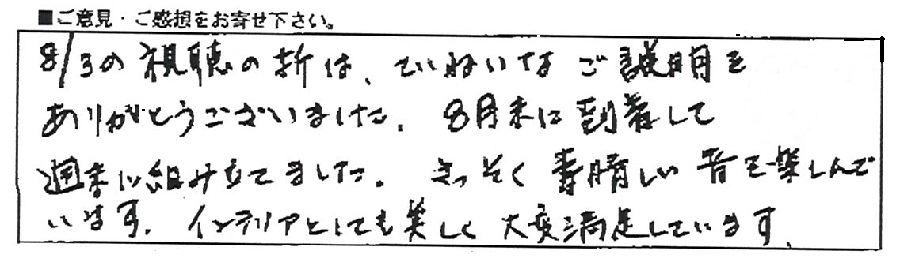 ■ご意見・ご感想をお寄せ下さい。
8/3の視聴の折は、ていねいなご説明を
ありがとうございました。8月末に到着して
週末に組み立てました。さっそく素晴しい音を楽しんで
います。インテリアとしても美しく大変満足しています。